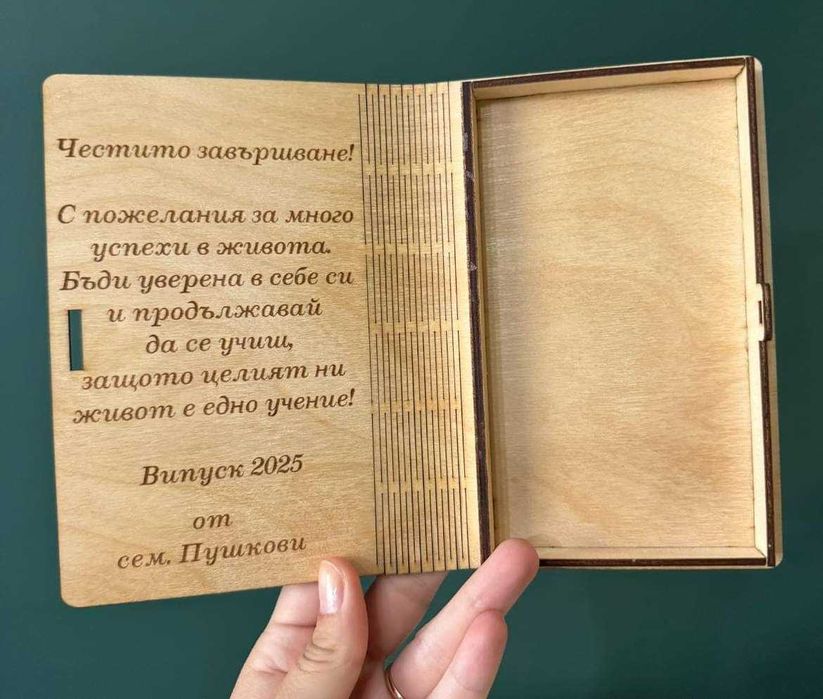 Честито завършване!
С пожелания за много
успехи в живота.
Бъди уверена в себе си
и продължавай
да се учиш,
защото целият ни
живот е едно учение!
Випуск 2025
от
сем. Пушкови